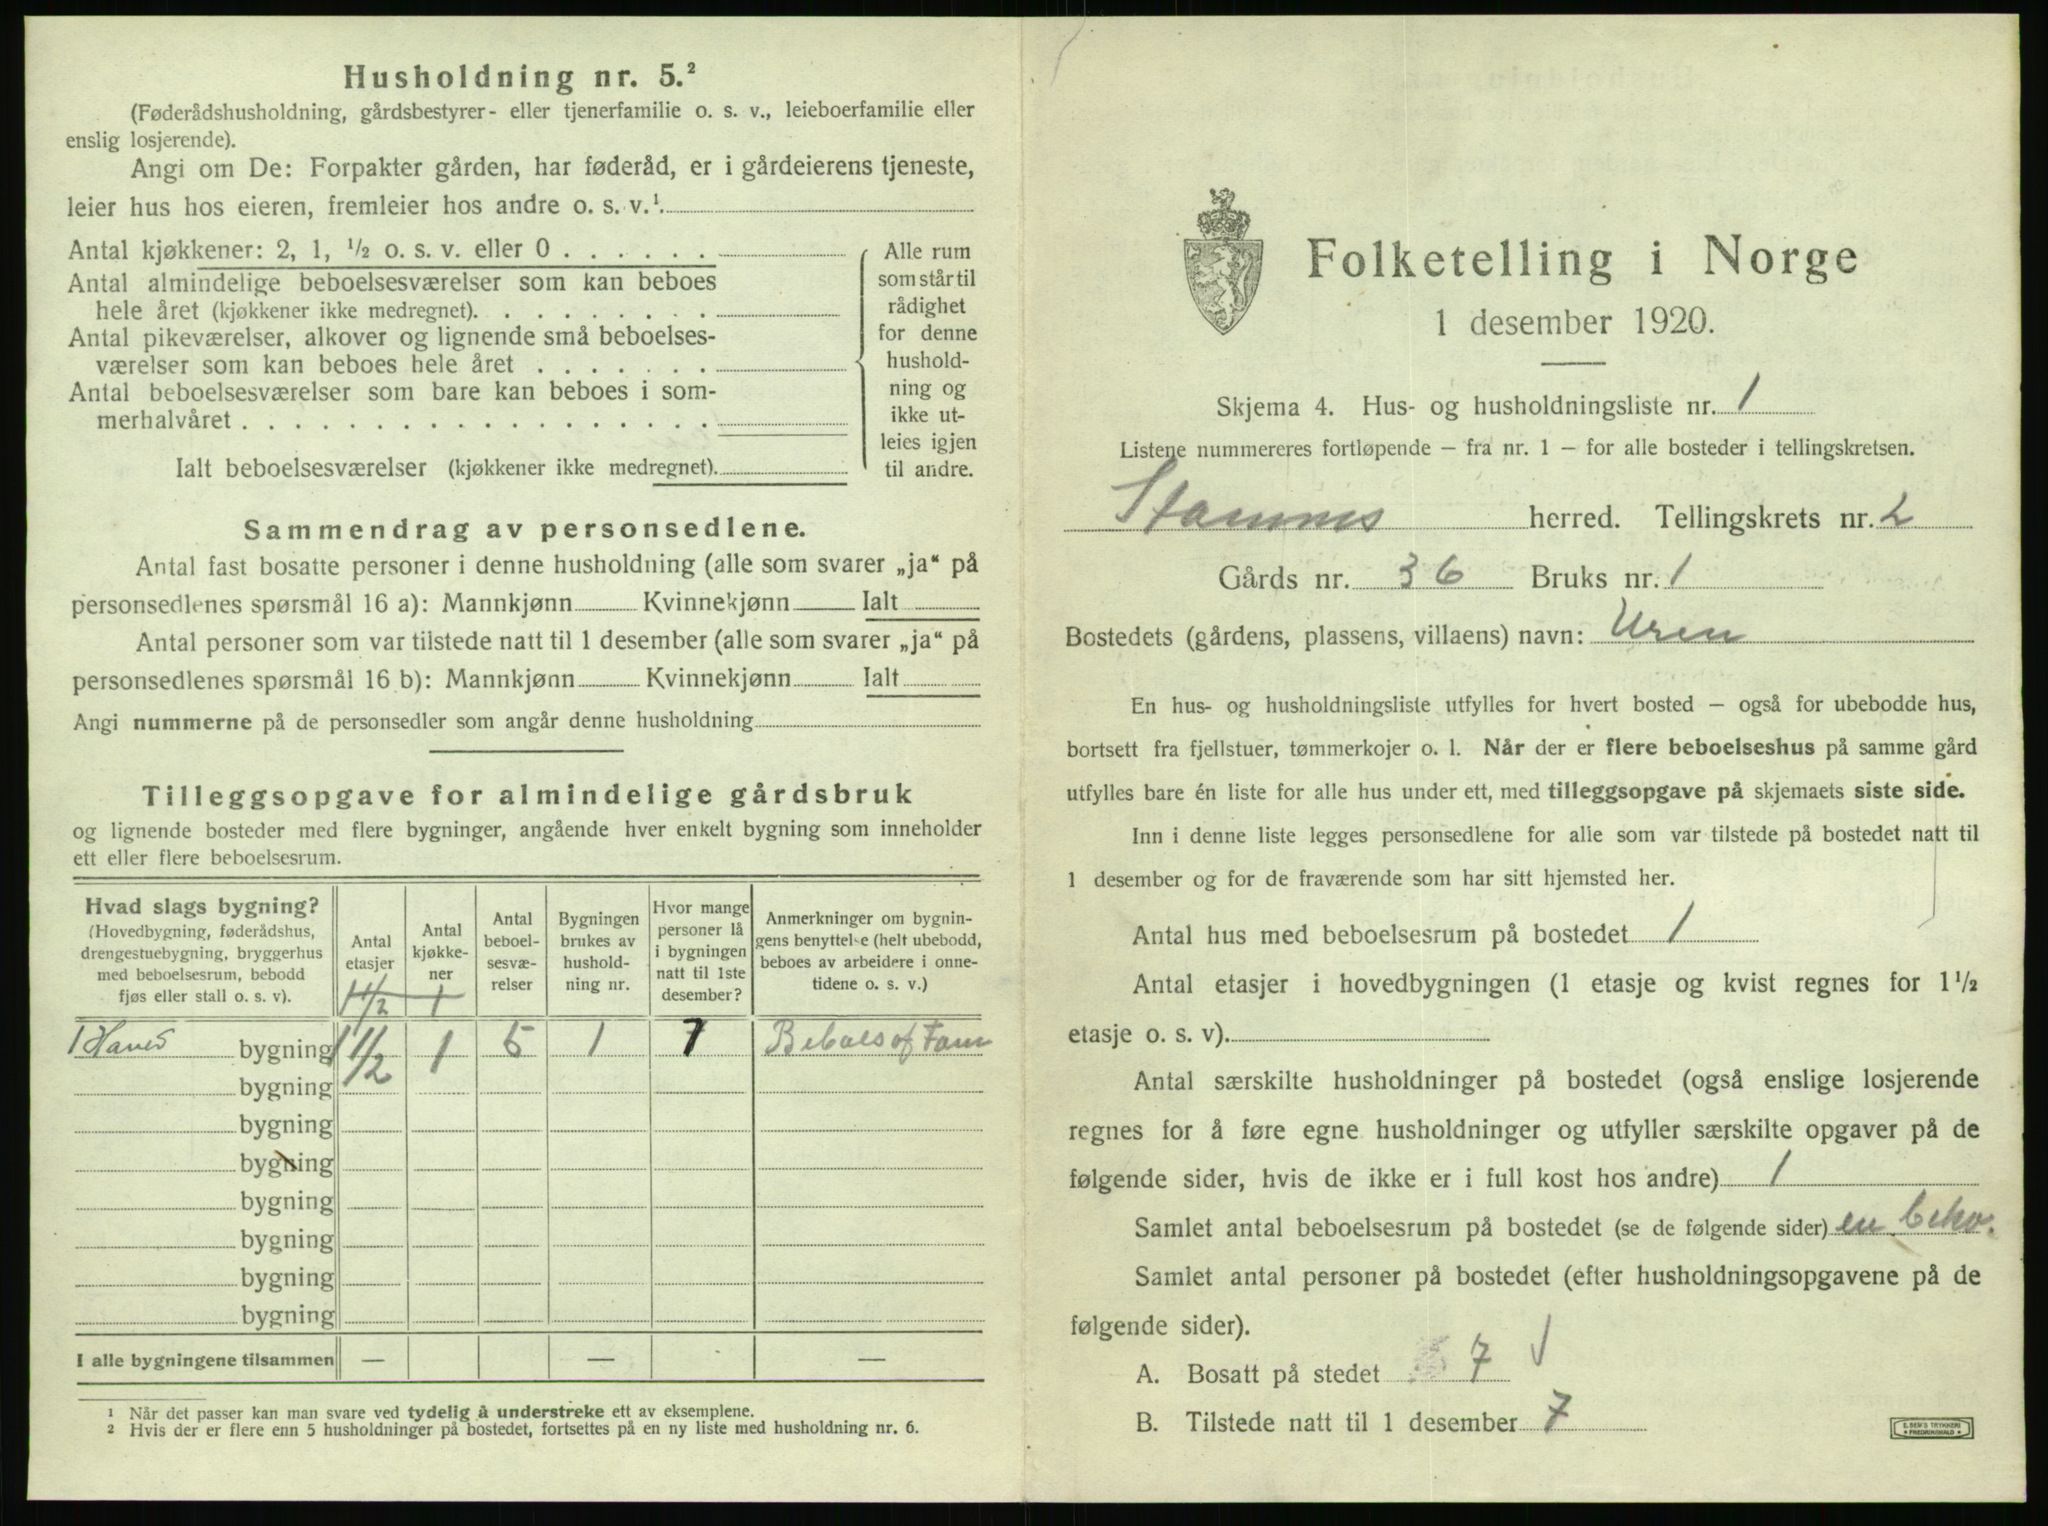 Husholdning nr. 5.²
(Føderådshusholdning, gårdsbestyrer- eller tjenerfamilie o. s. v., leieboerfamilie eller
enslig losjerende).
Angi om De: Forpakter gården, har føderåd, er i gårdeierens tjeneste,
leier hus hos eieren, fremleier hos andre o. s. v.¹
Antal kjøkkener: 2, 1, ½ o. s. v. eller 0 . . . . . .
Antal almindelige beboelsesværelser som kan beboes
hele året (kjøkkener ikke medregnet). . . . . . . .
Antal pikeværelser, alkover og lignende små beboelses-
værelser som kan beboes hele året . . . . . . .
Antal beboelsesværelser som bare kan beboes i som-
merhalvåret . . . . . . . . . . . . . . . . . .
Ialt beboelsesværelser (kjøkkener ikke medregnet).
Alle rum
som står til
rådighet
for denne
hushold-
ning og
ikke ut-
leies igjen
til andre.
Sammendrag av personsedlene.
Antal fast bosatte personer i denne husholdning (alle som svarer „ja“ på
personsedlenes spørsmål 16 a): Mannkjønn Kvinnekjønn Ialt
Antal personer som var tilstede natt til 1 desember (alle som svarer „ja“ på
personsedlenes spørsmål 16 b): Mannkjønn Kvinnekjønn Ialt
Angi nummerne på de personsedler som angår denne husholdning
Tilleggsopgave for almindelige gårdsbruk
og lignende bosteder med flere bygninger, angående hver enkelt bygning som inneholder
ett eller flere beboelsesrum.
Hvad slags bygning?
(Hovedbygning, føderådshus,
drengestuebygning, bryggerhus
med beboelsesrum, bebodd
fjøs eller stall o. s. v).
Antal
etasjer
1½
Antal
kjøkke-
ner
1
Antal
beboel-
sesvæ-
relser
Bygningen
brukes av
hushold-
ning nr.
Hvor mange
personer lå
i bygningen
natt til 1ste
desember?
Anmerkninger om bygnin-
gens benyttelse (helt ubebodd,
beboes av arbeidere i onne-
tidene o. s. v.)
bygning 1½ 1 5 1 7 Beboes of Fam
bygning
bygning
bygning
bygning
bygning
bygning
bygning
I alle bygningene tilsammen — — —
¹ Når det passer kan man svare ved tydelig å understreke ett av eksemplene.
² Hvis der er flere enn 5 husholdninger på bostedet, fortsettes på en ny liste med husholdning nr. 6.
Folketelling i Norge
1 desember 1920.
Skjema 4. Hus- og husholdningsliste nr. 1
Listene nummereres fortløpende – fra nr. 1 – for alle bosteder i tellingskretsen.
Stamnes herred. Tellingskrets nr. 2
Gårds nr. 36 Bruks nr. 1
Bostedets (gårdens, plassens, villaens) navn: Uren
En hus- og husholdningsliste utfylles for hvert bosted – også for ubebodde hus,
bortsett fra fjellstuer, tømmerkojer o. l. Når der er flere beboelseshus på samme gård
utfylles bare én liste for alle hus under ett, med tilleggsopgave på skjemaets siste side.
Inn i denne liste legges personsedlene for alle som var tilstede på bostedet natt til
1 desember og for de fraværende som har sitt hjemsted her.
Antal hus med beboelsesrum på bostedet 1
Antal etasjer i hovedbygningen (1 etasje og kvist regnes for 1½
etasje o. s. v).
Antal særskilte husholdninger på bostedet (også enslige losjerende
regnes for å føre egne husholdninger og utfyller særskilte opgaver på de
følgende sider, hvis de ikke er i full kost hos andre) 1
Samlet antal beboelsesrum på bostedet (se de følgende sider) en
Samlet antal personer på bostedet (efter husholdningsopgavene på de
følgende sider).
A. Bosatt på stedet 7 √
B. Tilstede natt til 1 desember 7
E. SEM'S TRYKKERI
• FREDRIKSHALD •